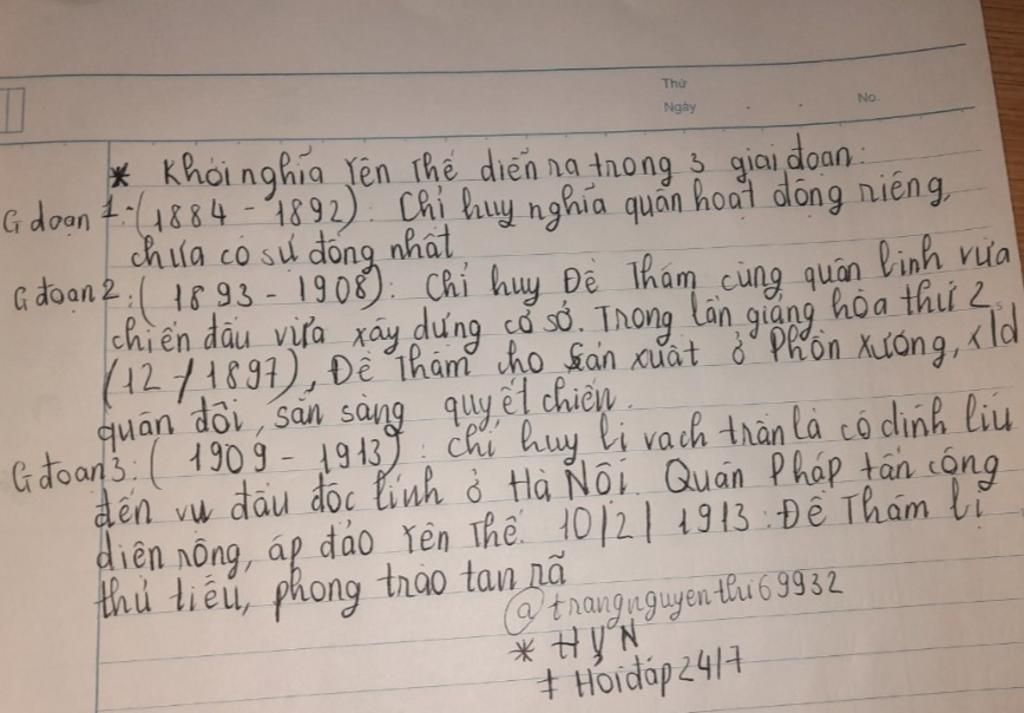 Thứ
Ngày . . No.
* Khởi nghĩa Yên Thế diễn ra trong 3 giai đoạn:
G đoạn 1:(1884 - 1892): Chỉ huy nghĩa quân hoạt động riêng,
chưa có sự đồng nhất
G đoạn 2:( 1893 - 1908): Chỉ huy Đề Thám cùng quân lính vừa
chiến đấu vừa xây dựng cơ sở. Trong lần giảng hòa thứ 2
(12 / 1897), Đề Thám cho sản xuất ở Phồn Xương, xld
quân đội, sẵn sàng quyết chiến.
G đoạn 3:( 1909 - 1913): chỉ huy bị vạch trần là có dính líu
đến vụ đầu độc lính ở Hà Nội. Quân Pháp tấn công
diện rộng, áp đảo Yên Thế. 10/2/1913: Đề Thám bị
thủ tiêu, phong trào tan rã
@trangnguyenthi69932
* HYN
‡ Hoidap247